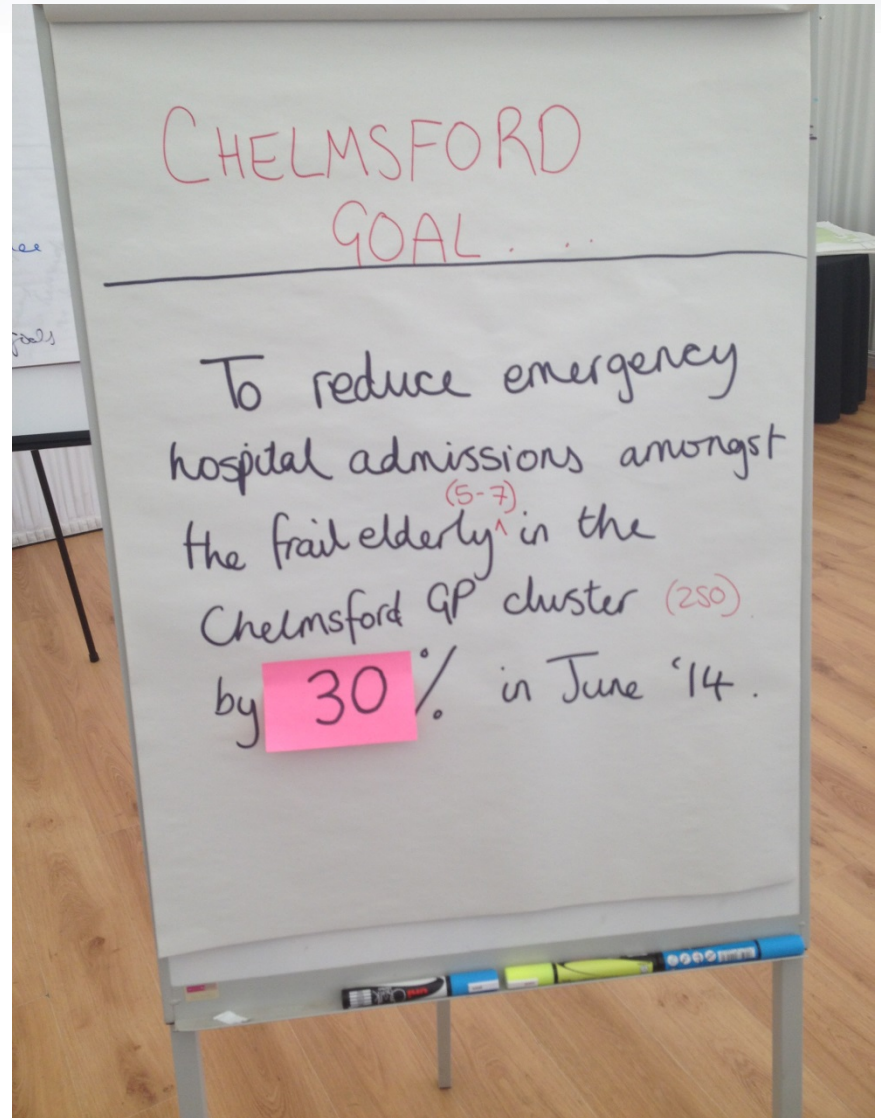 CHELMSFORD
GOAL....
To reduce emergency
hospital admissions amongst
(5-7)
the frail elderly ^ in the
Chelmsford GP cluster (250)
by 30% in June '14.
goals